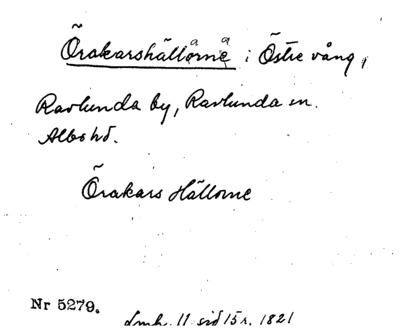 Örakarshällorne i Östre vång,
Ravlunda by, Ravlunda sn.
Albo hd.
Örakars Hällorne
Nr 5279.
Lmh. 11 sid 15 r. 1821